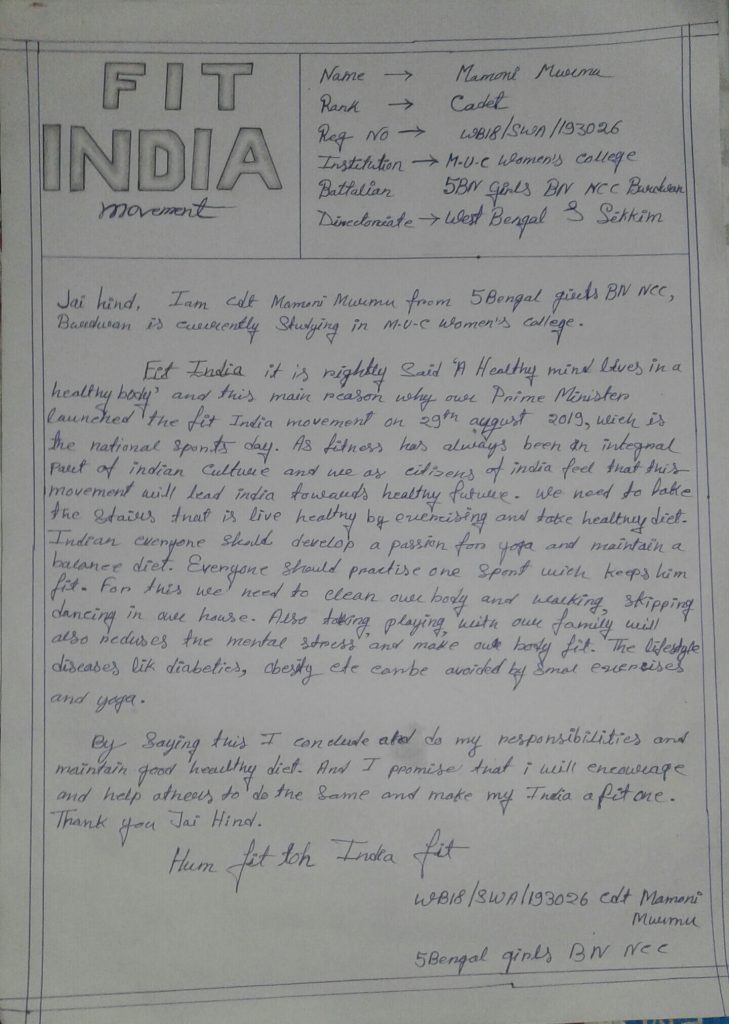 FIT
INDIA
movement
Name → Mamoni Murmu
Rank → Cadet
Reg No → WB18/SWA/193026
Institution → M-U-C Women's college
Battalian 5BN girls BN NCC Burdwan
Directoriate → West Bengal & Sikkim
Jai hind, I am cdt Mamoni Murmu from 5Bengal girls BN NCC,
Burdwan is currently Studying in M-U-C Women's college.
Fit India it is rightly Said 'A Healthy mind lives in a
healthy body' and this main reason why our Prime Minister
launched the fit India movement on 29th august 2019, wich is
the national sports day. As fitness has always been in integral
part of indian culture and we as citizens of india feel that this
movement will lead india towards healthy future. We need to take
the stairs that is live healthy by exercising and take healthy diet.
Indian everyone should develop a passion for yoga and maintain a
balance diet. Everyone should practise one sport wich keeps him
fit. For this we need to clean our body and walking, skipping
dancing in our house. Also taking, playing, with our family will
also reduses the mental stress and make our body fit. The lifestyle
diseases lik diabeties, obesity etc can be avoided by smal exercises
and yoga.
By Saying this I conclude and do my responsibilities and
maintain good healthy diet. And I promise that i will encourage
and help athers to do the same and make my India a fit one.
Thank you Jai Hind.
Hum fit toh India fit
WB18/SWA/193026 cdt Mamoni
Murmu
5Bengal girls BN NCC